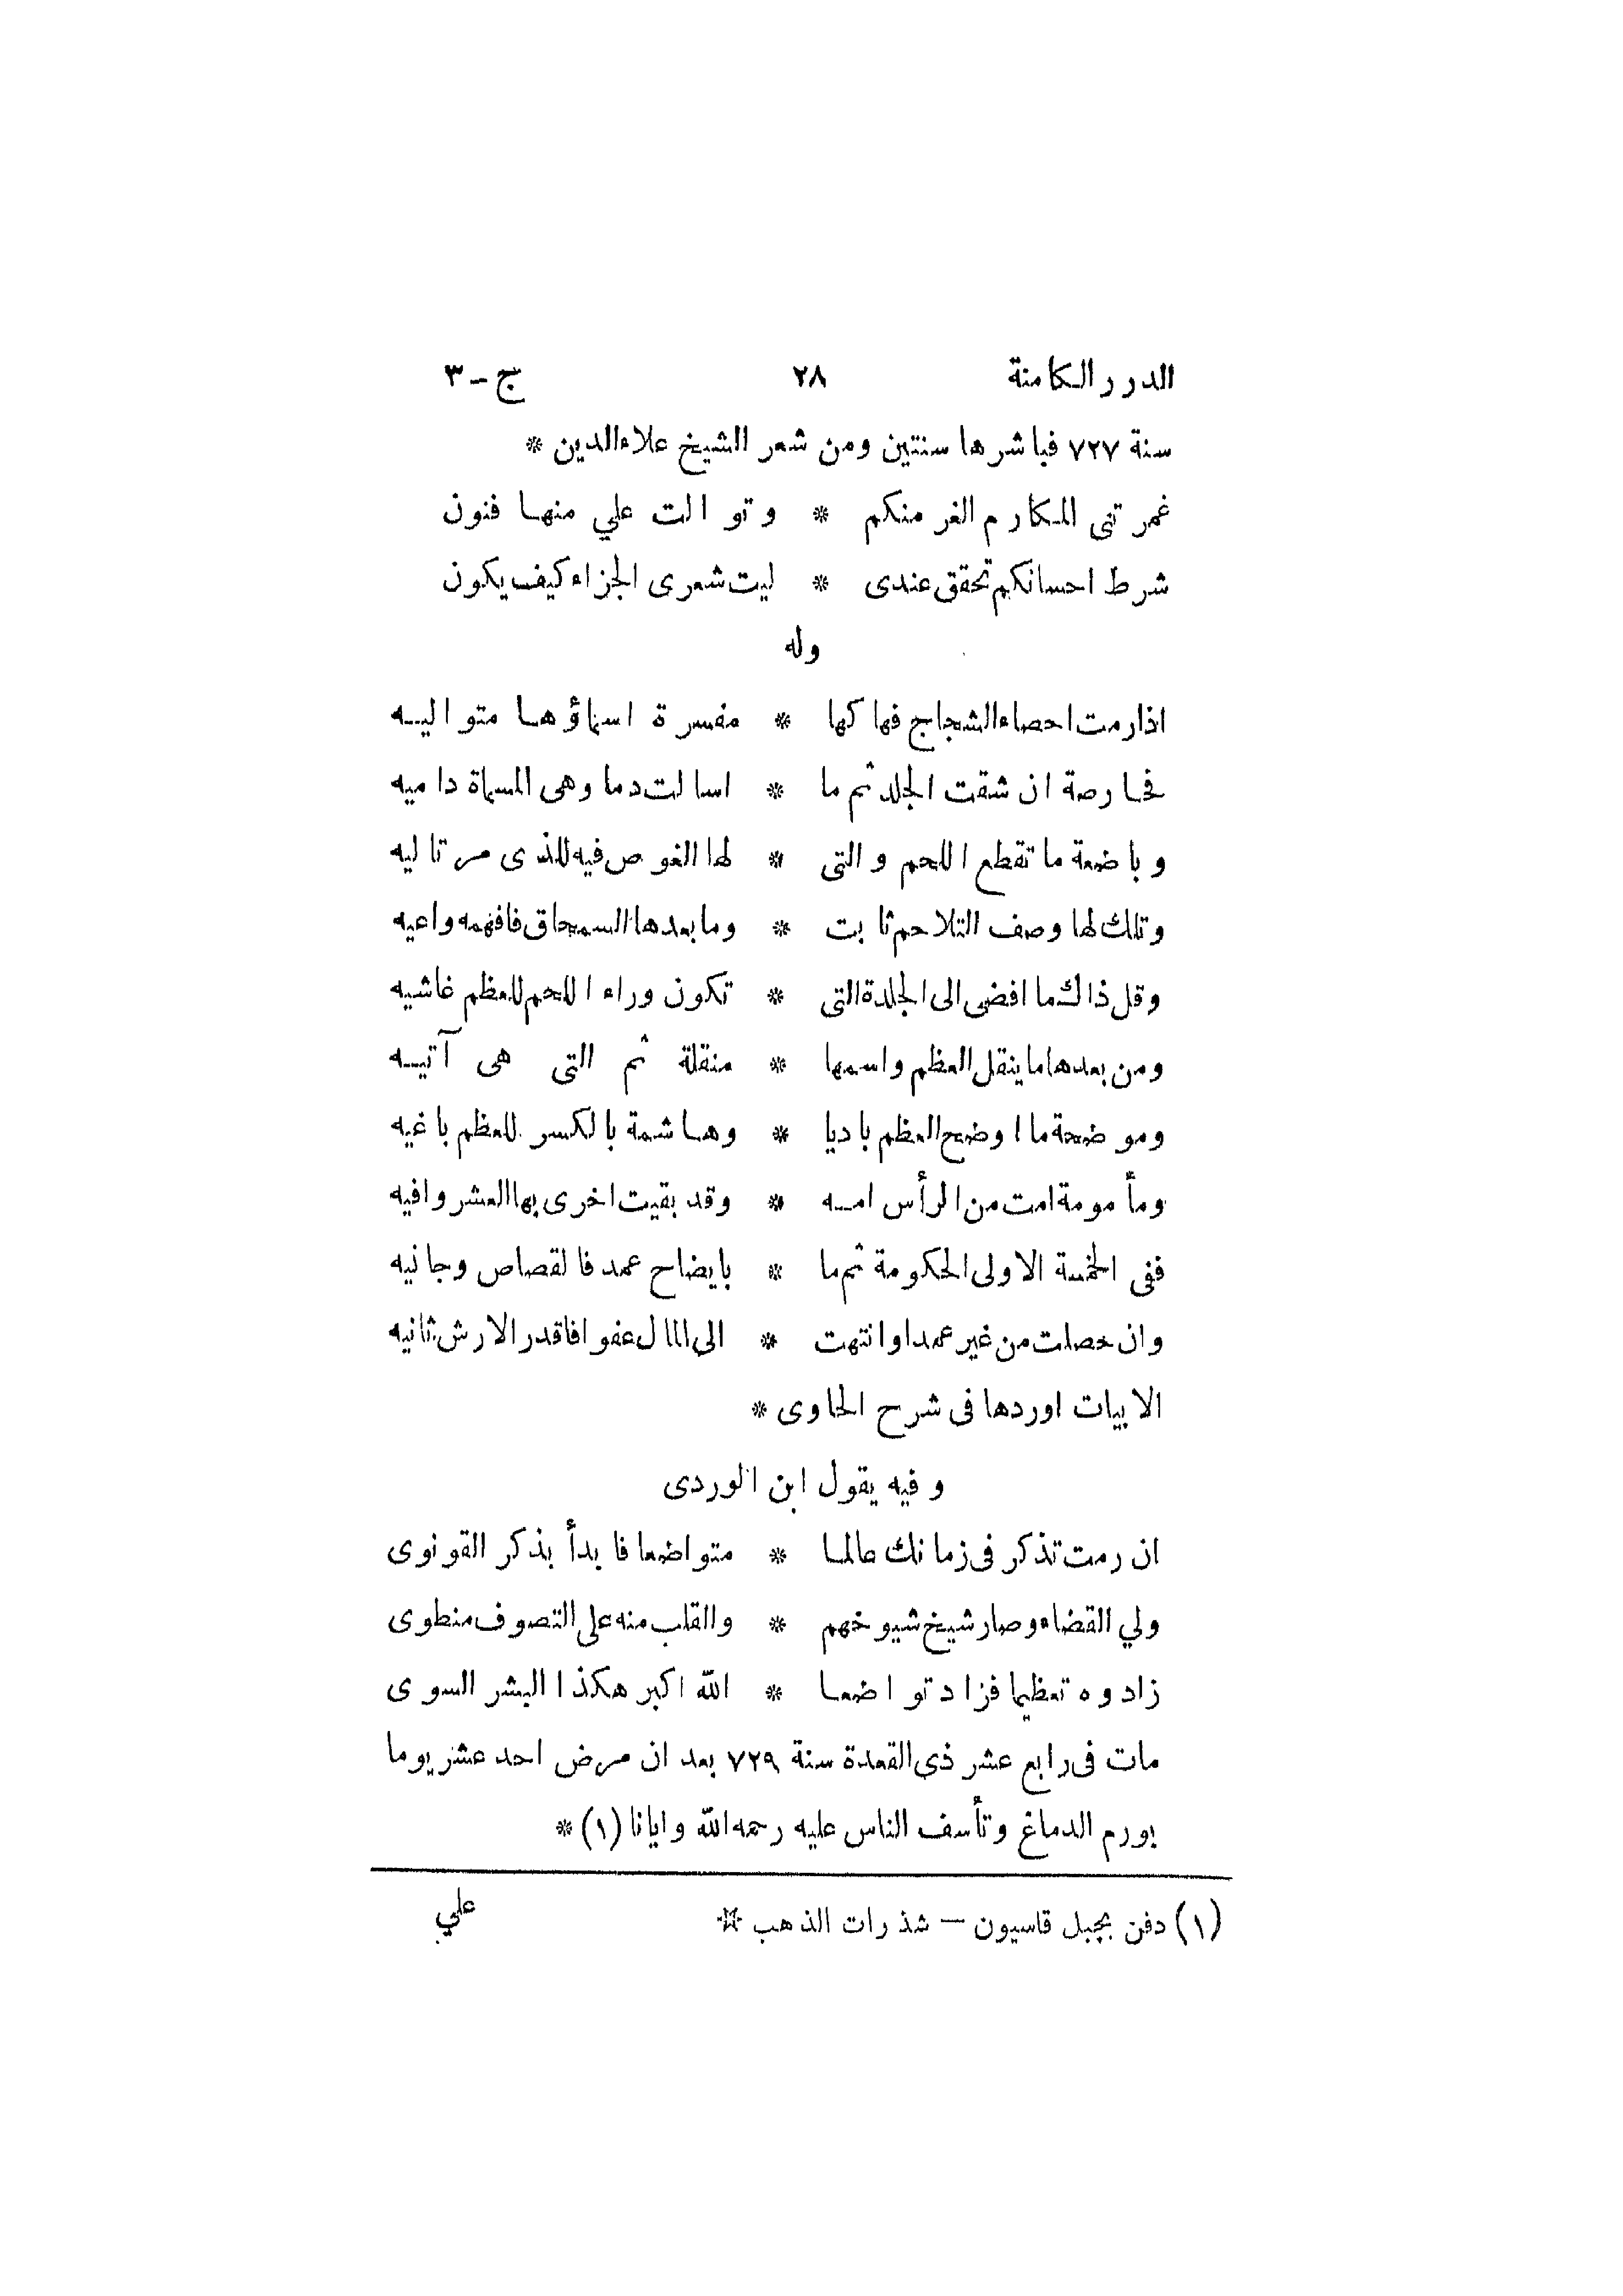 الدرر الكامنة ٢٨ ج - ٣
سنة ٧٢٧ فباشرها سنتين ومن شعر الشيخ علاء الدين *
غمرتنى المكارم الغر منكم * وتوالت علي منها فنون
شرط احسانكم تحقق عندى * ليت شعرى الجزاء كيف يكون
وله
اذا رمت احصاء الشجاج فهاكها * مفسرة اسماؤها متواليه
فحارصة ان شقت الجلد ثم ما * اسالت دما وهى المسماة داميه
وباضعة ما تقطع اللحم والتى * لها الغوص فيه للذى مر تاليه
وتلك لها وصف التلاحم ثابت * وما بعدها السمحاق فافهمه واعيه
وقل ذاك ما افضى الى الجلدة التى * تكون وراء اللحم للعظم غاشيه
ومن بعدها ما ينقل العظم واسمها * منقلة ثم التى هى آتيه
وموضحة ما اوضح العظم باديا * وهاشمة بالكسر للعظم باغيه
ومأمومة امت من الرأس امه * وقد بقيت اخرى بها العشر وافيه
ففى الخمسة الاولى الحكومة ثم ما * بايضاح عمد فالقصاص وجانيه
وان حصلت من غير عمد او انتهت * الى المال عفوا فاقدر الارش ثانيه
الابيات اوردها فى شرح الحاوى *
وفيه يقول ابن الوردى
ان رمت تذكر فى زمانك عالما * متواضعا فابدأ بذكر القونوى
ولي القضاء وصار شيخ شيوخهم * والقلب منه على التصوف منطوى
زادوه تعظيما فزاد تواضعا * الله اكبر هكذا البشر السوى
مات فى رابع عشر ذي القعدة سنة ٧٢٩ بعد ان مرض احد عشر يوما
بورم الدماغ وتأسف الناس عليه رحمه الله وايانا (١) *
(١) دفن بجبل قاسيون — شذرات الذهب * علي